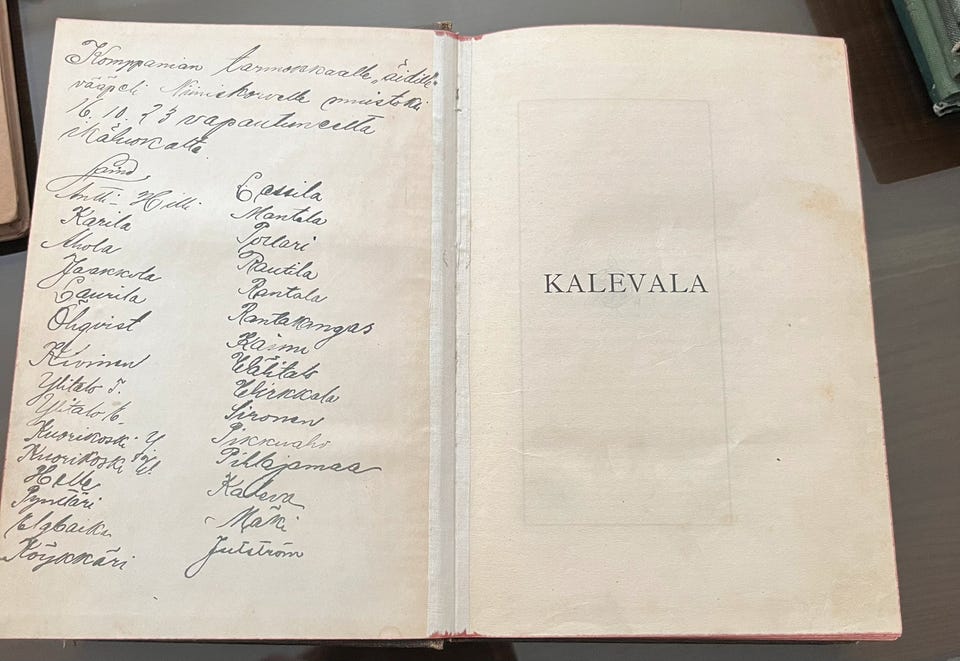 Komppanian tarmokkaalle "äidille"
vääpeli Niiniskorvelle muistoksi
16.10.23 vapautuneelta
ikäluokalta
Antti-Hilli
Karila
Ahola
Jaakkola
Laurila
Öhqvist
Kivinen
Ylitalo J.
Ylitalo E.
Kuorikoski Y
Kuorikoski
Helle
Pynttäri
Köykkäri
Lassila
Mantela
Pollari
Rautila
Rantala
Rantakangas
Kainu
Wälitalo
Wirkkala
Sironen
Pikkuaho
Pihlajamaa
Kaleva
Mäki
Julström
KALEVALA